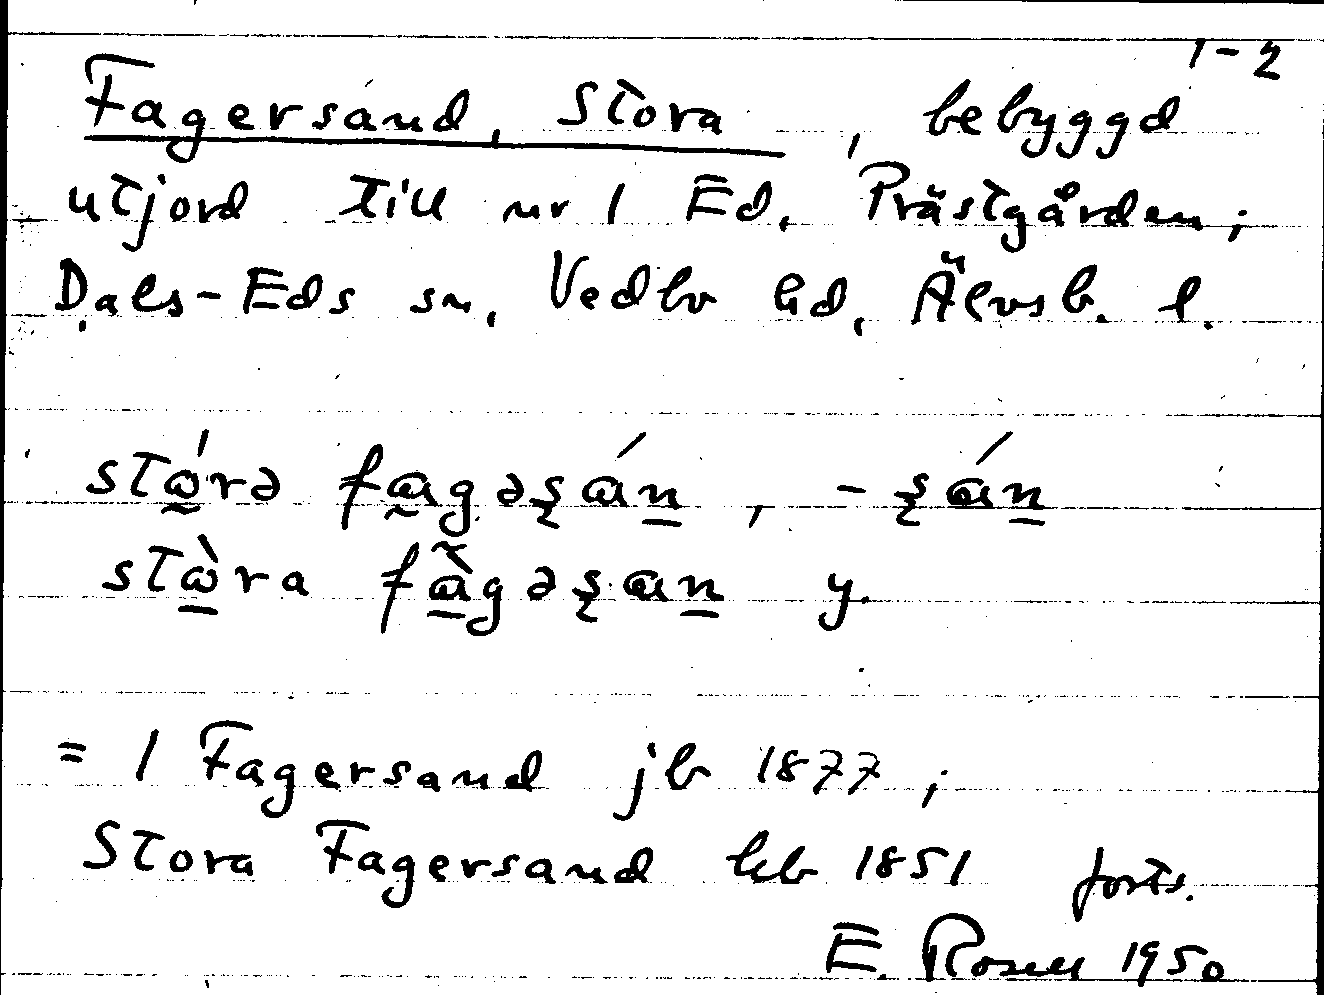 1-2
Fagersand, Stora, bebyggd
utjord till nr 1 Ed, Prästgården;
Dals-Eds sn, Vedbo hd, Älvsb. l.
stώ̰rə fa̰gəʂán̲, -ʂán̲
stὼ̲ra fà̲gəʂan̲ y.
= 1 Fagersand jb 1877;
Stora Fagersand hb 1851 forts.
E. Rosell 1950